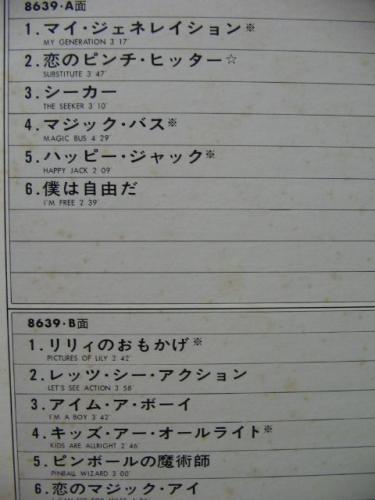 8639・A面
1.マイ・ジェネレイション※
MY GENERATION 3´17˝
2.恋のピンチ・ヒッター☆
SUBSTITUTE 3´47˝
3.シーカー
THE SEEKER 3´10˝
4.マジック・バス※
MAGIC BUS 4´29˝
5.ハッピー・ジャック※
HAPPY JACK 2´09˝
6.僕は自由だ
I'M FREE 2´39˝
8639・B面
1.リリィのおもかげ※
PICTURES OF LILY 2´42˝
2.レッツ・シー・アクション
LET'S SEE ACTION 3´58˝
3.アイム・ア・ボーイ
I'M A BOY 3´42˝
4.キッズ・アー・オールライト※
KIDS ARE ALLRIGHT 2´46˝
5.ピンボールの魔術師
PINBALL WIZARD 3´00˝
6.恋のマジック・アイ